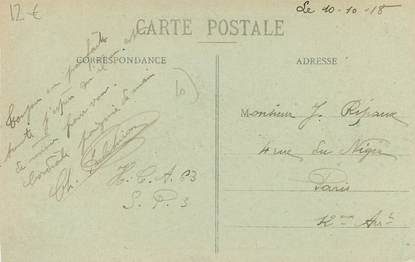 12 €
Le 10-10-18
CARTE POSTALE
CORRESPONDANCE
ADRESSE
10
Toujours en parfaite
santé j'espère qu'il en est
de même pour vous.
Cordiale poignée de main
Ch.
H.C.A. 63
S.P. 3
Monsieur J.
4 rue du Niger
Paris
12me Arrt